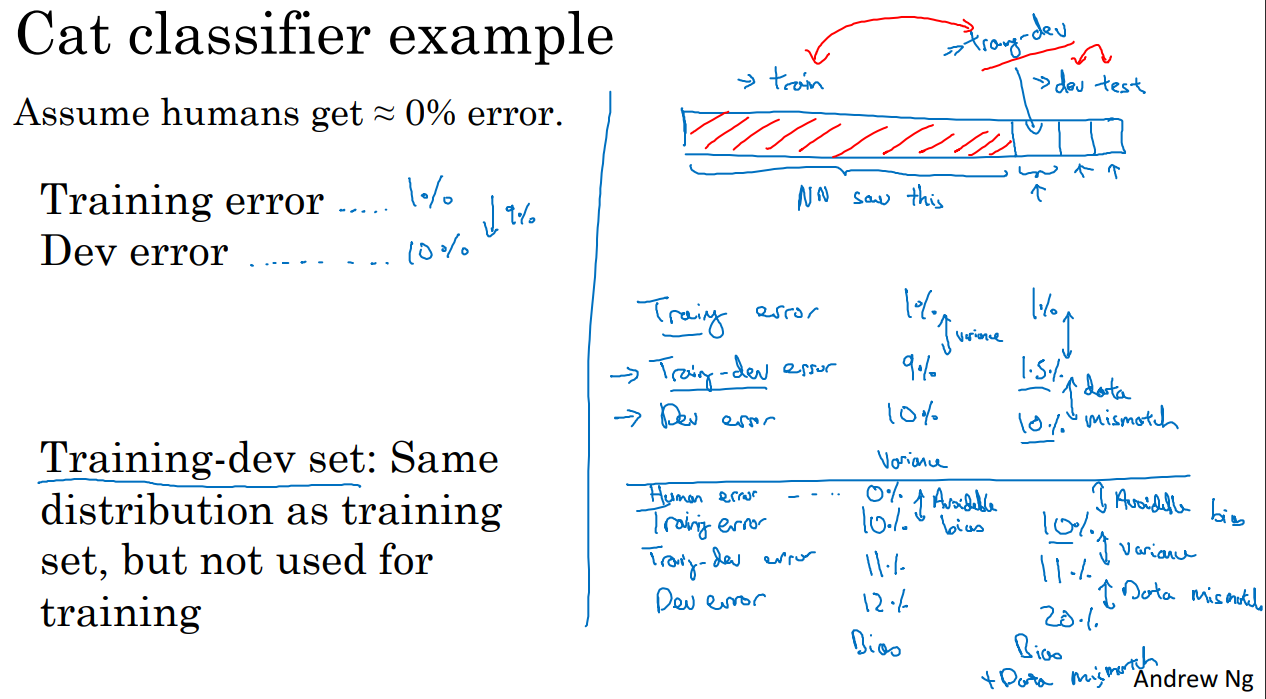 Cat classifier example
Assume humans get ≈ 0% error.
Training error ..... 1%
↓ 9%
Dev error ......... 10%
Training-dev set: Same
distribution as training
set, but not used for
training
→ train
→ traing-dev
→ dev test
NN saw this
Traing error 1% 1%
variance
→ Traing-dev error 9% 1.5%
data
→ Dev error 10% 10% mismatch
Variance
Human error ---... 0% Avoidable bias
Avoidable bias
Traing error 10% 10%
variance
Traing-dev error 11% 11%
Data mismatch
Dev error 12% 20%
Bias
Bias
+ Data mismatch
Andrew Ng